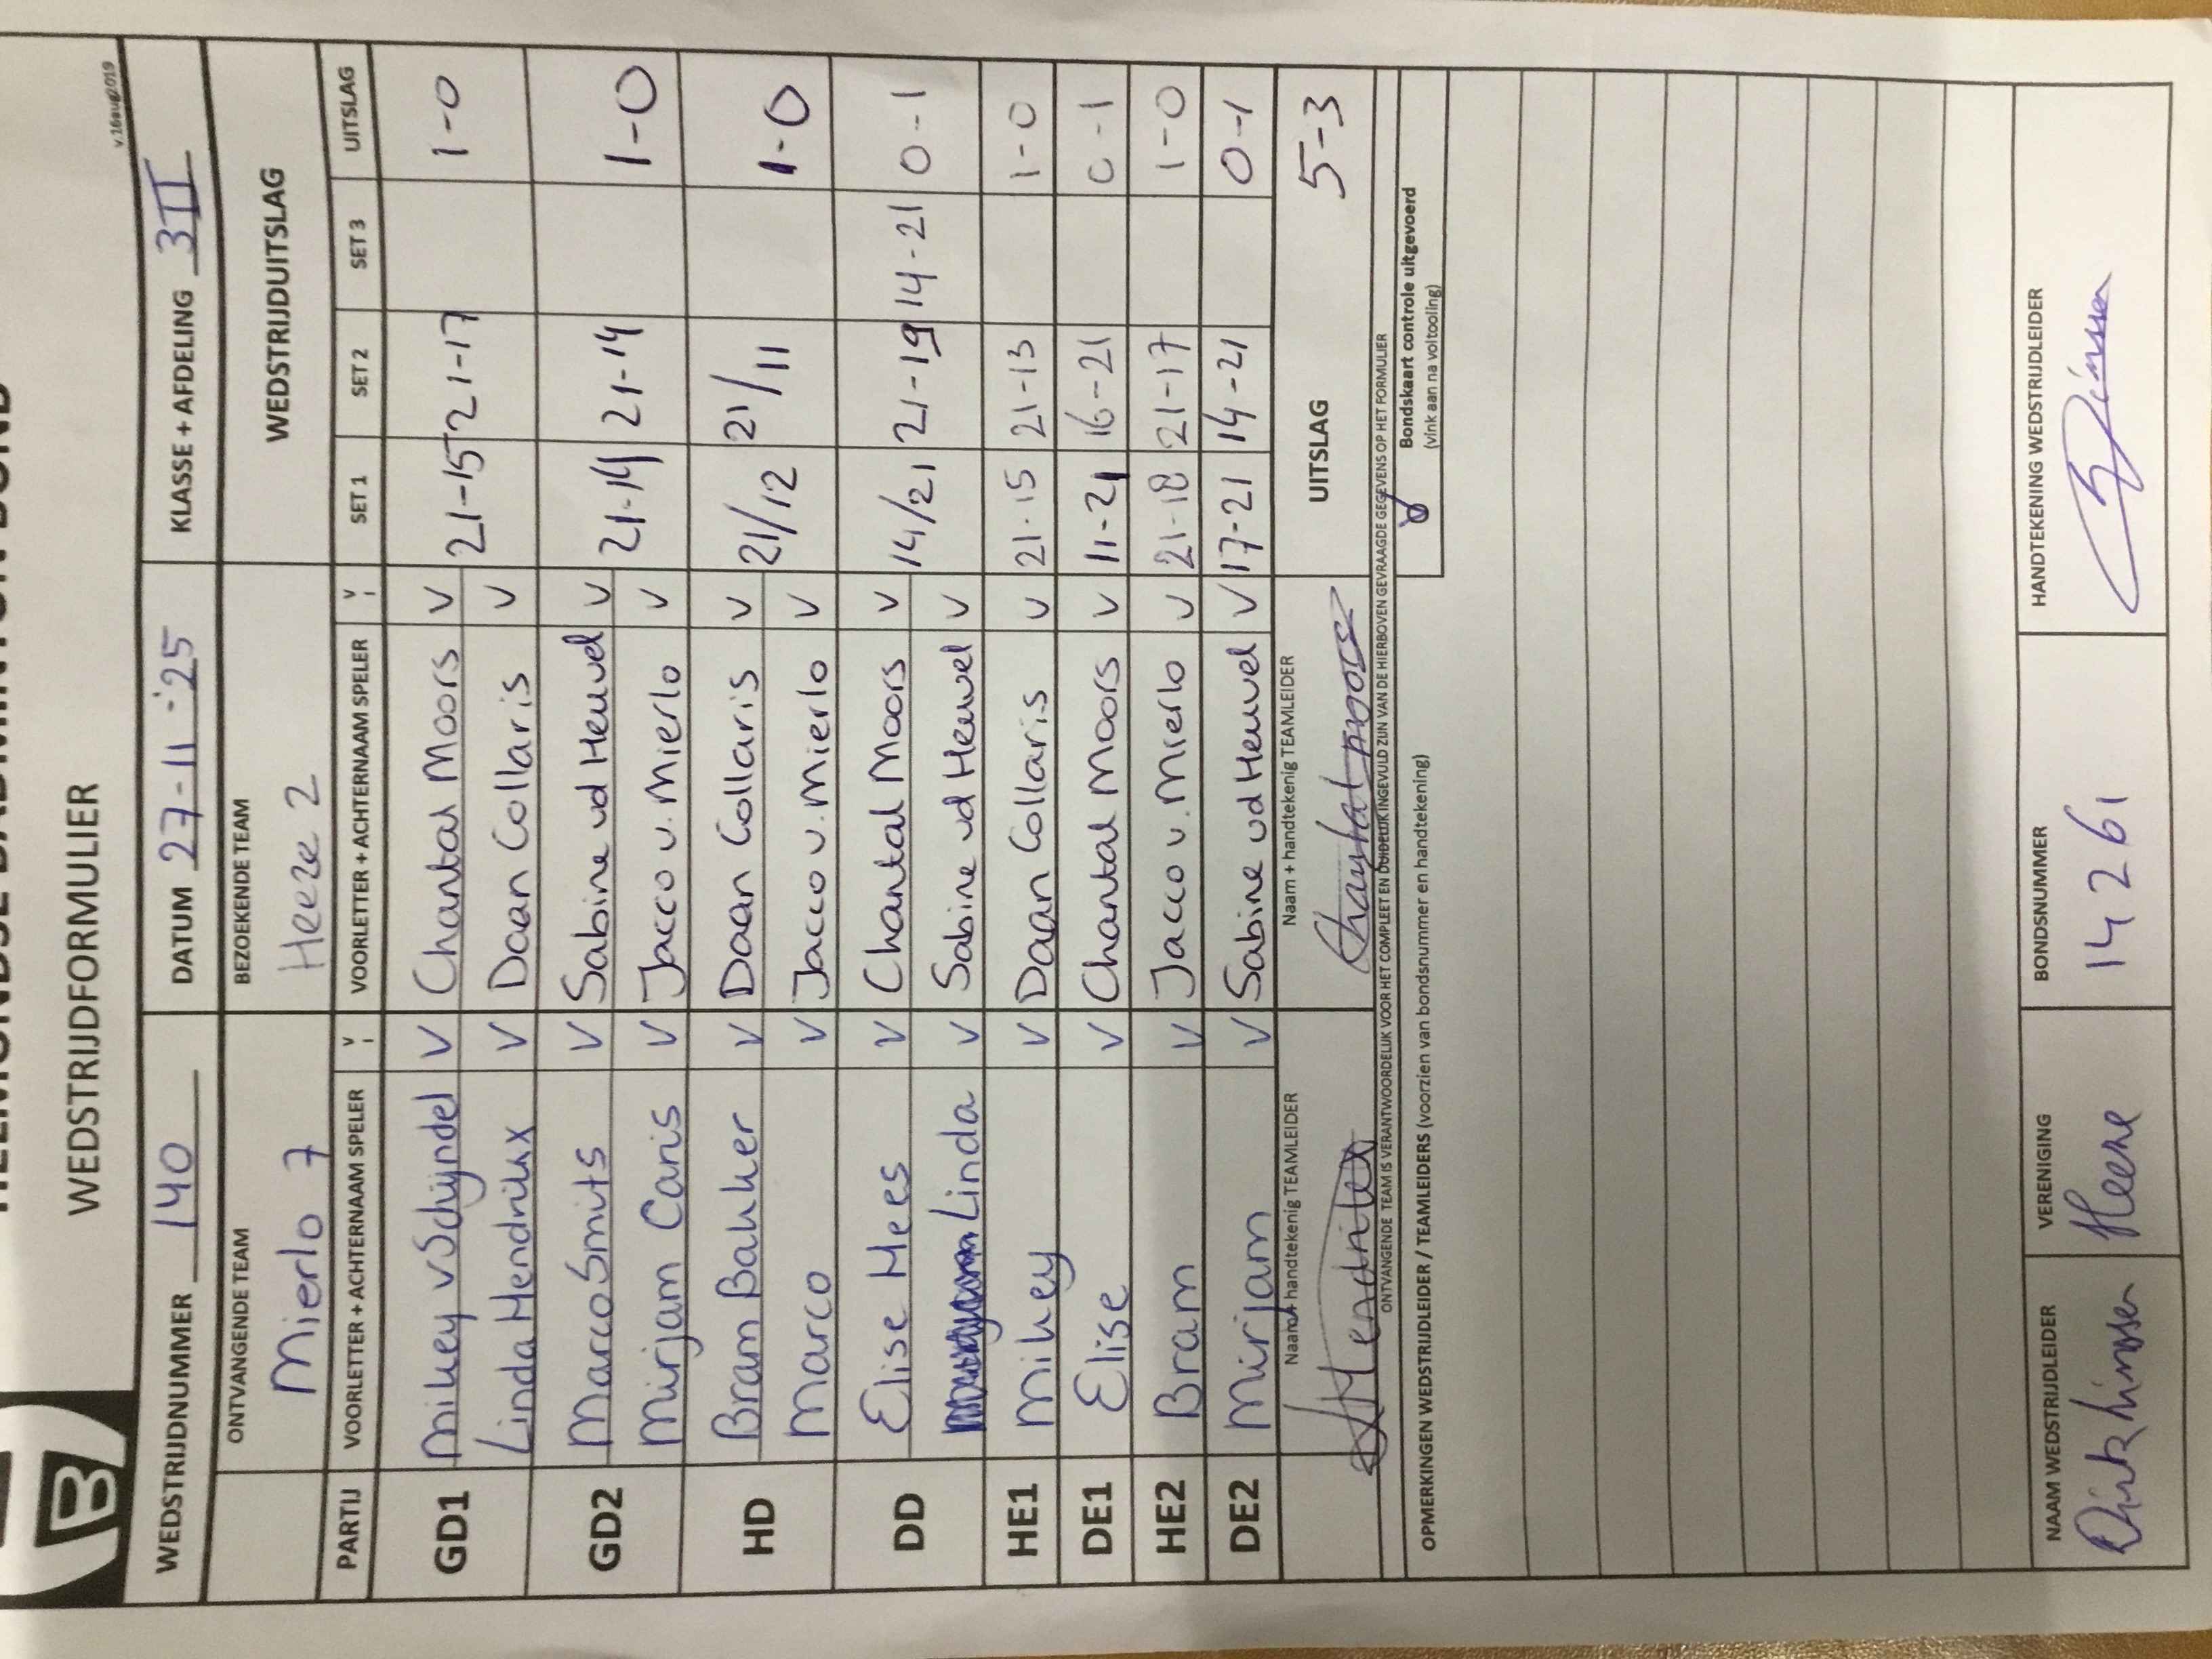 WEDSTRIJDFORMULIER
v.16aug2019
WEDSTRIJDNUMMER 140 DATUM 27-11-'25 KLASSE + AFDELING 3II
ONTVANGENDE TEAM BEZOEKENDE TEAM WEDSTRIJDUITSLAG
Mierlo 7 Heeze 2
PARTIJ VOORLETTER + ACHTERNAAM SPELER V VOORLETTER + ACHTERNAAM SPELER V SET 1 SET 2 SET 3 UITSLAG
GD1 Mikey v Schijndel V Chantal Moors V 21-15 21-17 1-0
Linda Hendrikx V Daan Collaris V
GD2 Marco Smits V Sabine vd Heuvel V 21-14 21-14 1-0
Mirjam Caris V Jacco v. Mierlo V
HD Bram Bakker V Daan Collaris V 21/12 21/11 1-0
Marco V Jacco v. Mierlo V
DD Elise Mees V Chantal Moors V 14/21 21-19 14-21 0-1
Linda V Sabine vd Heuvel V
HE1 Mikey V Daan Collaris V 21-15 21-13 1-0
DE1 Elise V Chantal Moors V 11-21 16-21 0-1
HE2 Bram V Jacco v. Mierlo V 21-18 21-17 1-0
DE2 Mirjam V Sabine vd Heuvel V 17-21 14-21 0-1
Naam + handtekenig TEAMLEIDER Naam + handtekenig TEAMLEIDER UITSLAG 5-3
Chantal Moors
ONTVANGENDE TEAM IS VERANTWOORDELIJK VOOR HET COMPLEET EN DUIDELIJK INGEVULD ZIJN VAN DE HIERBOVEN GEVRAAGDE GEGEVENS OP HET FORMULIER
OPMERKINGEN WEDSTRIJDLEIDER / TEAMLEIDERS (voorzien van bondsnummer en handtekening) Bondskaart controle uitgevoerd
(vink aan na voltooiing)
NAAM WEDSTRIJDLEIDER VERENIGING BONDSNUMMER HANDTEKENING WEDSTRIJDLEIDER
14261